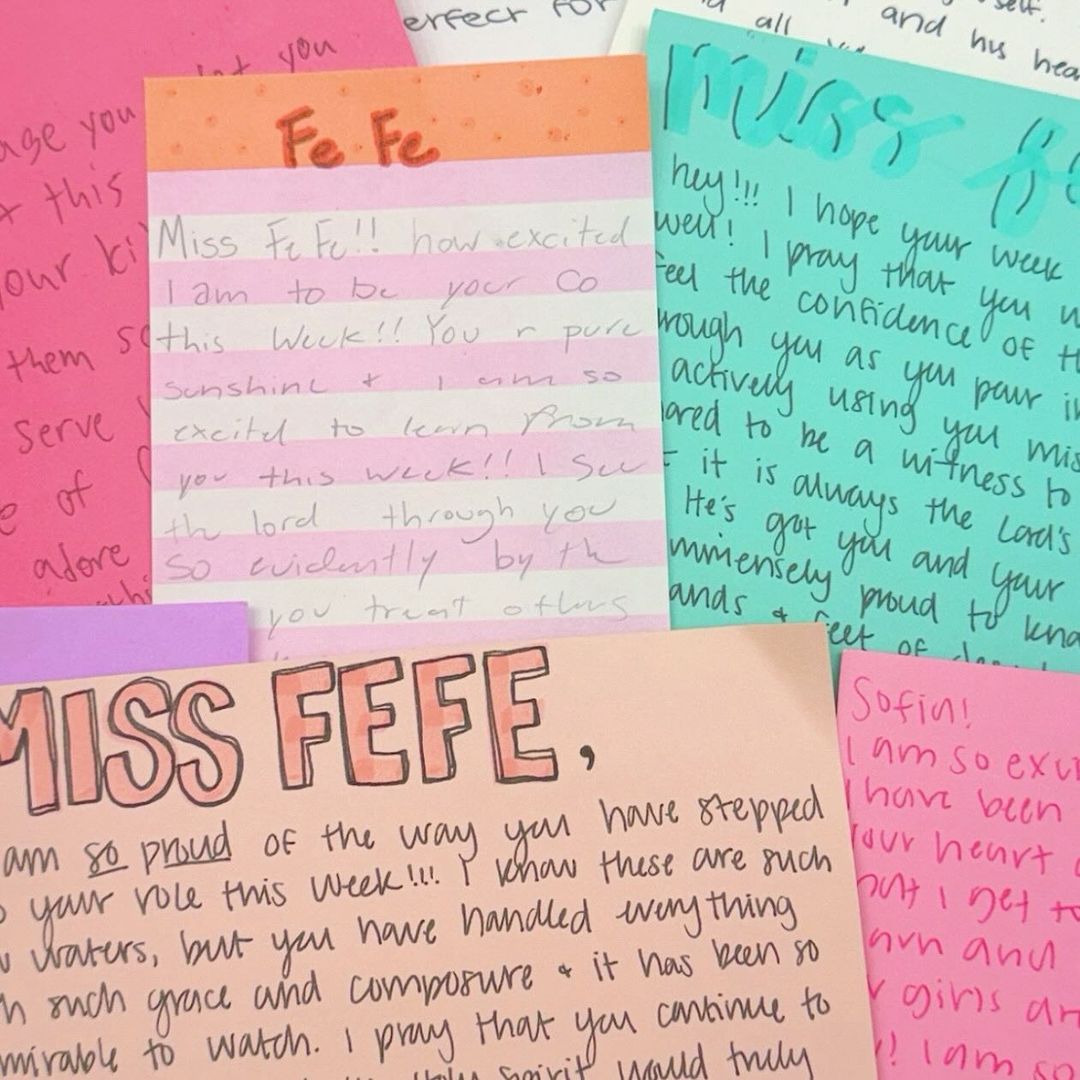 erfect for
self.
and his hea
all
you
age you
this
our ki
them
serve
of
adore
Fe Fe
Miss FeFe!! how excited
I am to be your Co
this Week!! You r pure
sunshine + I am so
excited to learn from
you this week!! I See
th lord through you
So evidently by th
you treat others
miss
hey!!! I hope your week
well! I pray that you w
feel the confidence of th
rough you as you pour in
actively using you mis
ared to be a witness to
it is always the Lord's
He's got you and your
mmensely proud to kno
ands & feet of
MISS FEFE,
am so proud of the way you have stepped
o your role this week!!! I know these are such
w waters, but you have handled everything
h such grace and composure & it has been so
mirable to watch. I pray that you continue to
spirit would truly
Sofia!
I am so exci
I have been
our heart
but I get to
arn and
girls ar
! I am so